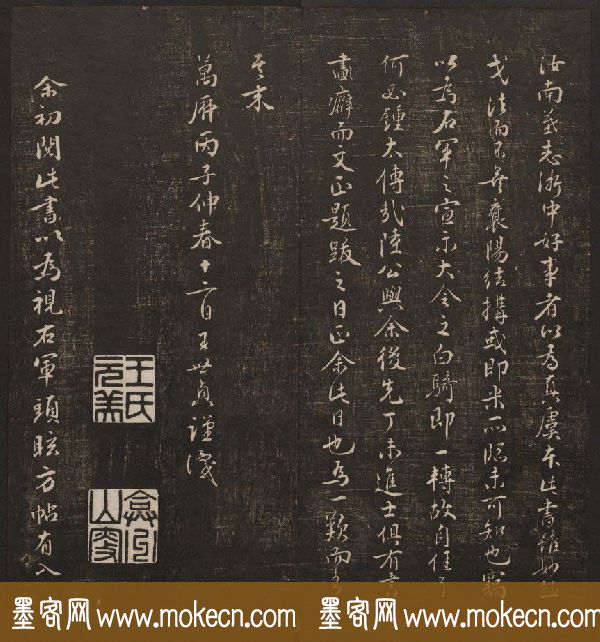 汝南公志浙中好事者以為真虞本此書雖妙在
戈法而不無襄陽結構或即米所臨未可知也竊
以為右軍之宣示大令之白騎即一轉故自佳耳
何必鍾太傅哉陸公與余後先丁未進士俱有書
畫癖而文正題跋之日正余此日也為一歎而書
其末
萬曆丙子仲春十二日王世貞謹識
王氏元美
余初閱此書以為視右軍頭眩方帖有入
墨客网 www.mokecn.com 墨客网 www.mokecn.com